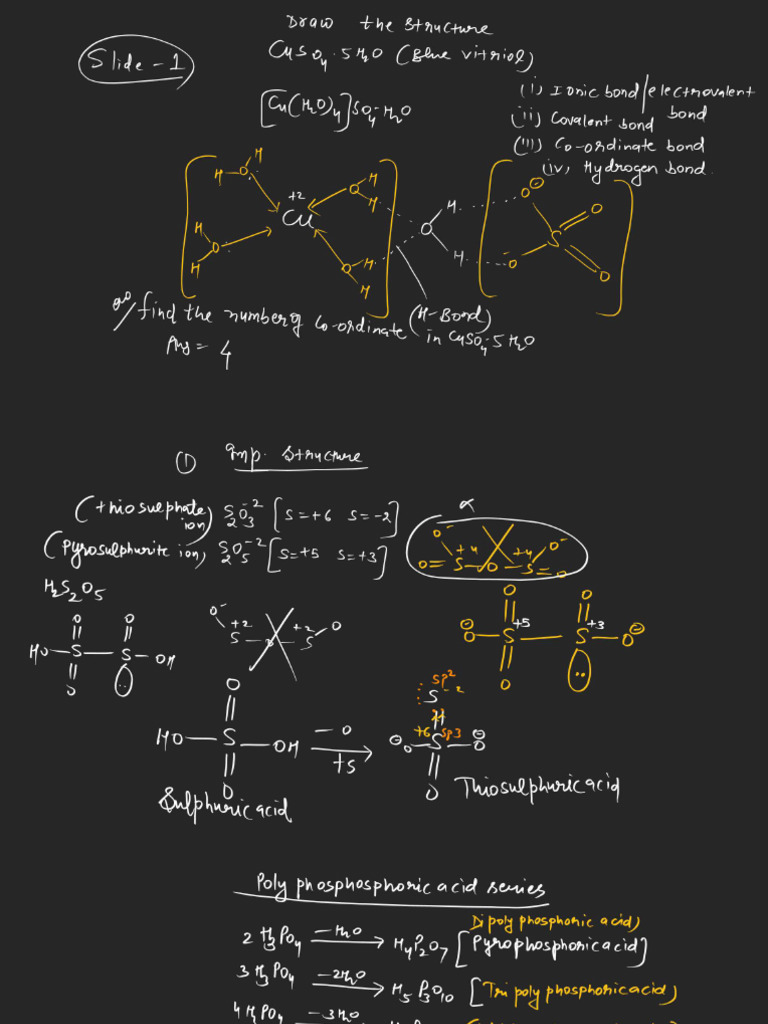 Slide-1
Draw the structure
CuSO4.5H2O (Blue vitriol)
[Cu(H2O)4]SO4.H2O
(i) Ionic bond/electrovalent bond
(ii) Covalent bond
(iii) Co-ordinate bond
(iv) Hydrogen bond
H H O
+2
Cu
O H H
H O H
O H H
H O H
O⊖ S O O O-
find the number of Co-ordinate (H-Bond)
in CuSO4.5H2O
Ans = 4
① Imp. Structure
(thiosulphate ion) S2O3-2 [S=+6 S=-2]
(Pyrosulphurite ion) S2O5-2 [S=+5 S=+3]
O- +4 +4 O-
O=S-O-S=O
H2S2O5
O O
HO-S-S-OH
O
O- +2 +2 O
S S
O O
⊖O-S +5 S +3 O⊖
O
O
HO-S-OH
O
-O
+S
Sp2
S -2
+6 Sp3
⊖O-S-O⊖
O
Sulphuric acid
Thiosulphuric acid
Poly phosphosphoric acid series
2 H3PO4 -H2O → H4P2O7 [Pyrophosphoric acid]
Dipoly phosphoric acid)
3 H3PO4 -2H2O → H5P3O10 [Tri poly phosphoric acid)
4 H3PO4 -3H2O